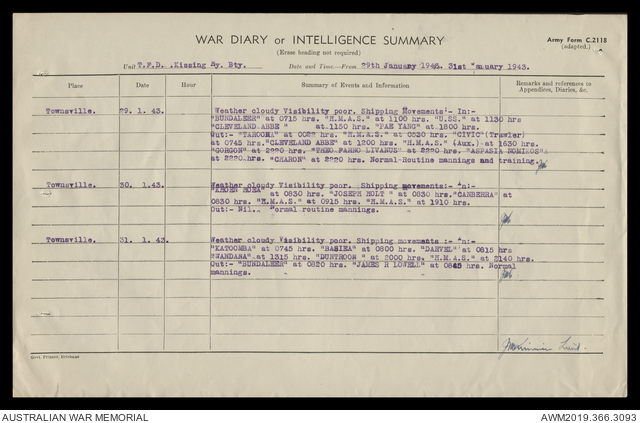 WAR DIARY or INTELLIGENCE SUMMARY
(Erase heading not required)
Army Form C.2118
(adapted.)
Unit T.F.D. Kissing Pt. Bty. Date and Time—From 29th January 1943. 31st January 1943.
Place Date Hour Summary of Events and Information Remarks and references to Appendices, Diaries, &c.
Townsville. 29. 1. 43. Weather cloudy Visibility poor. Shipping Movements- In:-
"BUNDALEER" at 0715 hrs. "H.M.A.S." at 1100 hrs. "U.SS." at 1130 hrs
"CLEVELAND ABBE" at 1150 hrs. "PAE YANG" at 1800 hrs.
Out:- "TAROONA" at hrs. "H.M.A.S." at 0530 hrs. "CIVIC" (Trawler)
at 0745 hrs. "CLEVELAND ABBE" at 1200 hrs. "H.M.A.S." (Aux.) at 1630 hrs.
"GORGON" at 2220 hrs. "THEO LIVANUS" at 2220 hrs. "ASPASIA NOMIKOS"
at 2220.hrs. "CHARON" at 2220 hrs. Normal Routine mannings and training.
Townsville. 30. 1.43. Weather cloudy Visibility poor. Shipping Movements:- In:-
at 0830 hrs. "JOSEPH HOLT" at 0830 hrs. "CANBERRA" at
0830 hrs. "H.M.A.S." at 0915 hrs. "H.M.A.S." at 1910 hrs.
Out:- Nil. ormal routine mannings.
Townsville. 31. 1. 43. Weather cloudy Visibility poor. Shipping movements :- In:-
"KATOOMBA" at 0745 hrs. at 0800 hrs. "DARVEL" at 0815 hrs
"WANDANA" at 1315 hrs. "DUNTROON" at 2000 hrs. "H.M.A.S." at 2140 hrs.
Out:- "BUNDALEER" at 0820 hrs. "JAMES R LOWELL" at 0845 hrs. Normal
mannings.
Lieut.
Govt. Printer, Brisbane
AUSTRALIAN WAR MEMORIAL AWM2019.366.3093